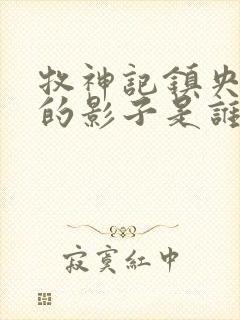 牧神記鎮央
的影子是誰
寂寞紅中